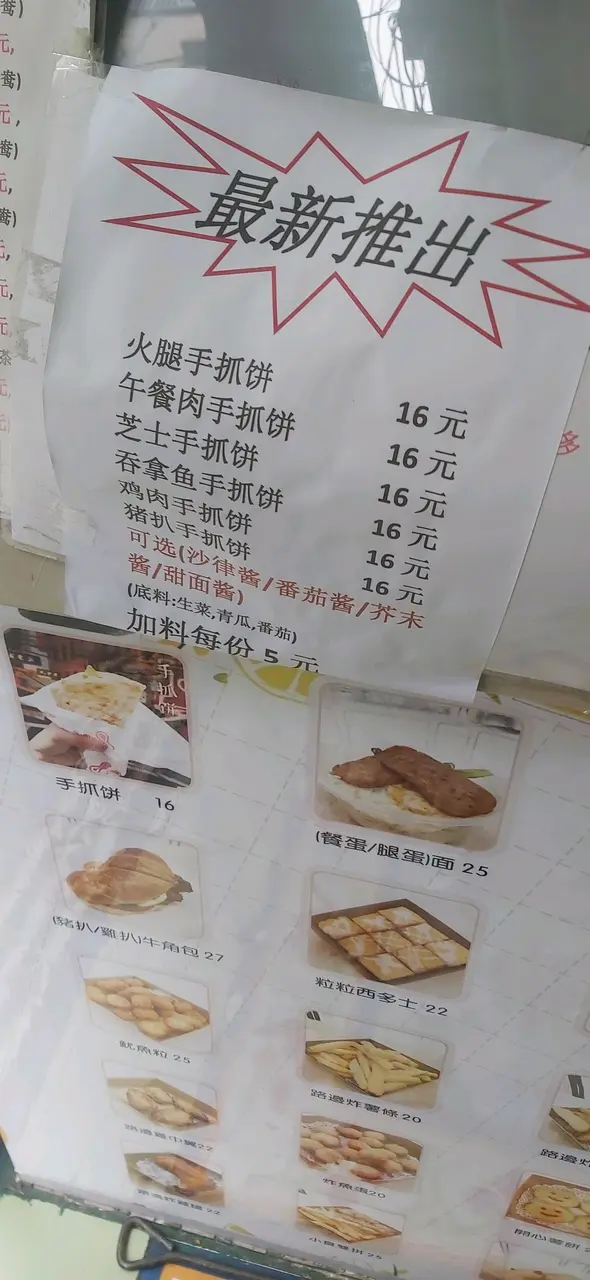 最新推出
火腿手抓饼 16 元
午餐肉手抓饼 16 元
芝士手抓饼 16 元
吞拿鱼手抓饼 16 元
鸡肉手抓饼 16 元
猪扒手抓饼 16 元
可选(沙律酱/番茄酱/芥末
酱/甜面酱)
(底料:生菜,青瓜,番茄)
加料每份 5 元
手抓饼 16
(餐蛋/腿蛋)面 25
(豬扒/雞扒)牛角包 27
粒粒西多士 22
魷魚粒 25
路邊炸薯條 20
路邊雞中翼 22
炸魚蛋 20
22
25
開心薯餅